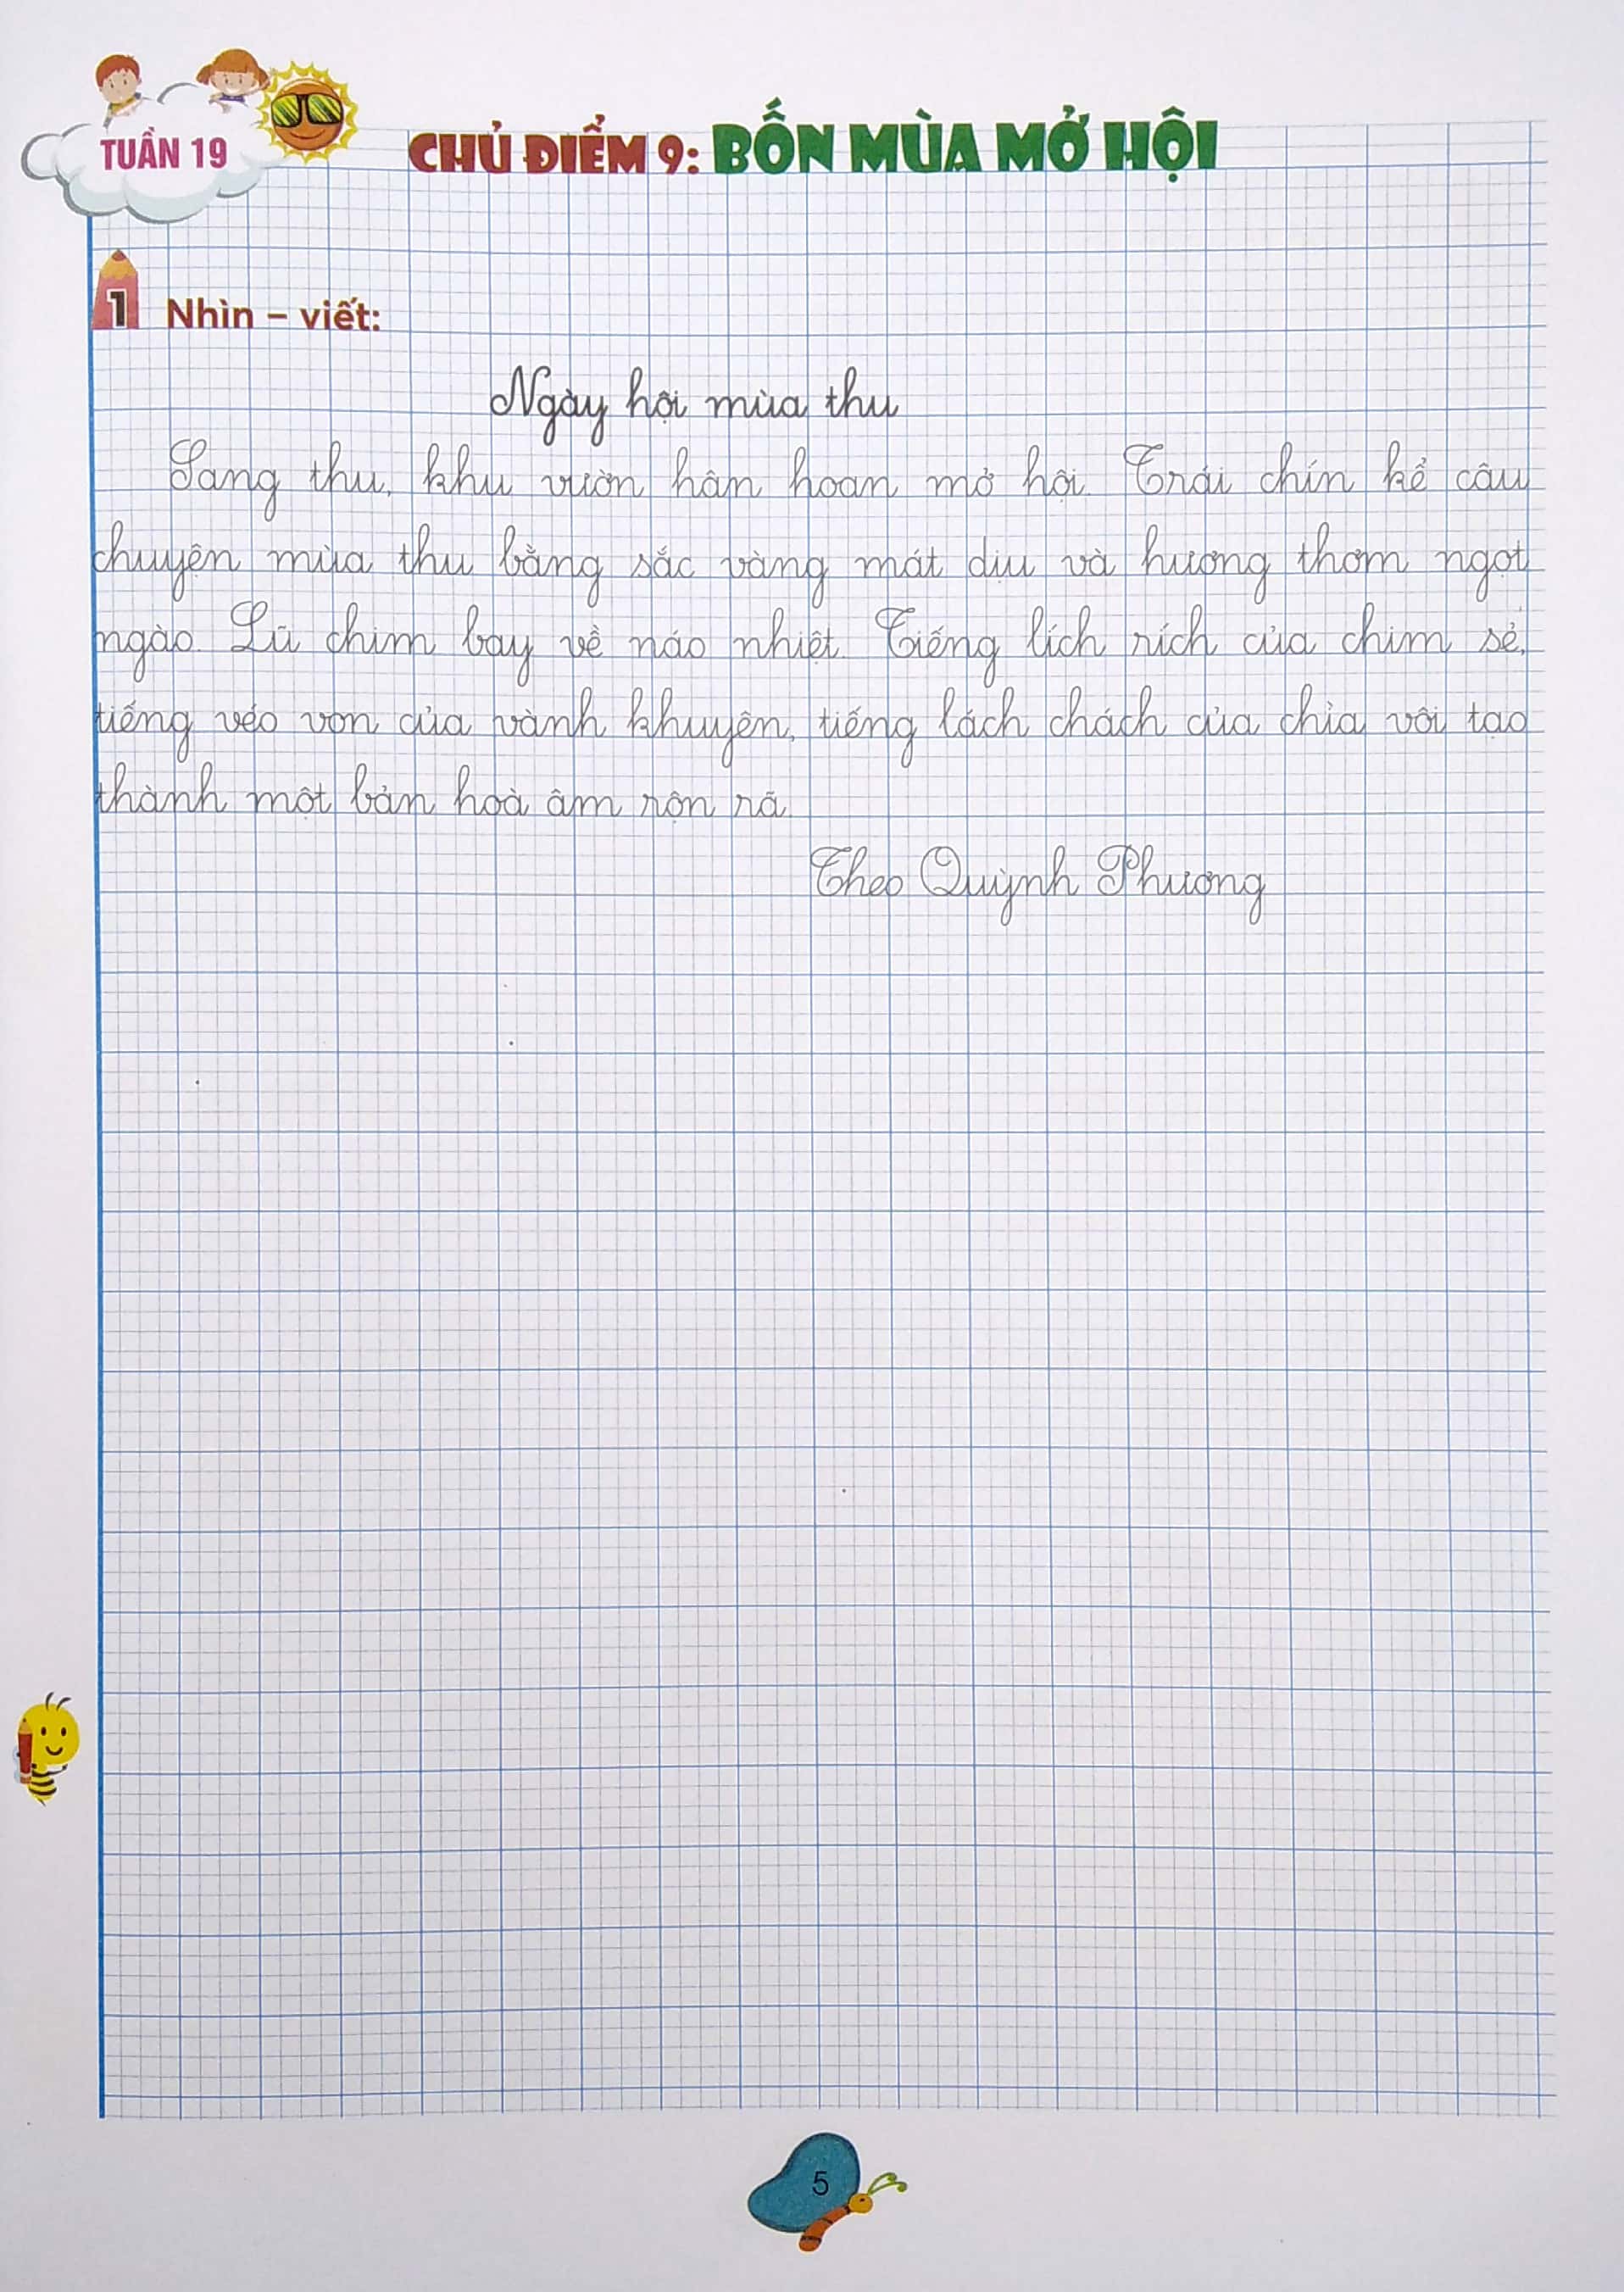 TUẦN 19
CHỦ ĐIỂM 9: BỐN MÙA MỞ HỘI
1 Nhìn – viết:
Ngày hội mùa thu
Sang thu, khu vườn hân hoan mở hội. Trái chín kể câu
chuyện mùa thu bằng sắc vàng mát dịu và hương thơm ngọt
ngào. Lũ chim bay về náo nhiệt. Tiếng lích rích của chim sẻ,
tiếng véo von của vành khuyên, tiếng lách chách của chìa vôi tạo
thành một bản hoà âm rộn rã.
Theo Quỳnh Phương
5